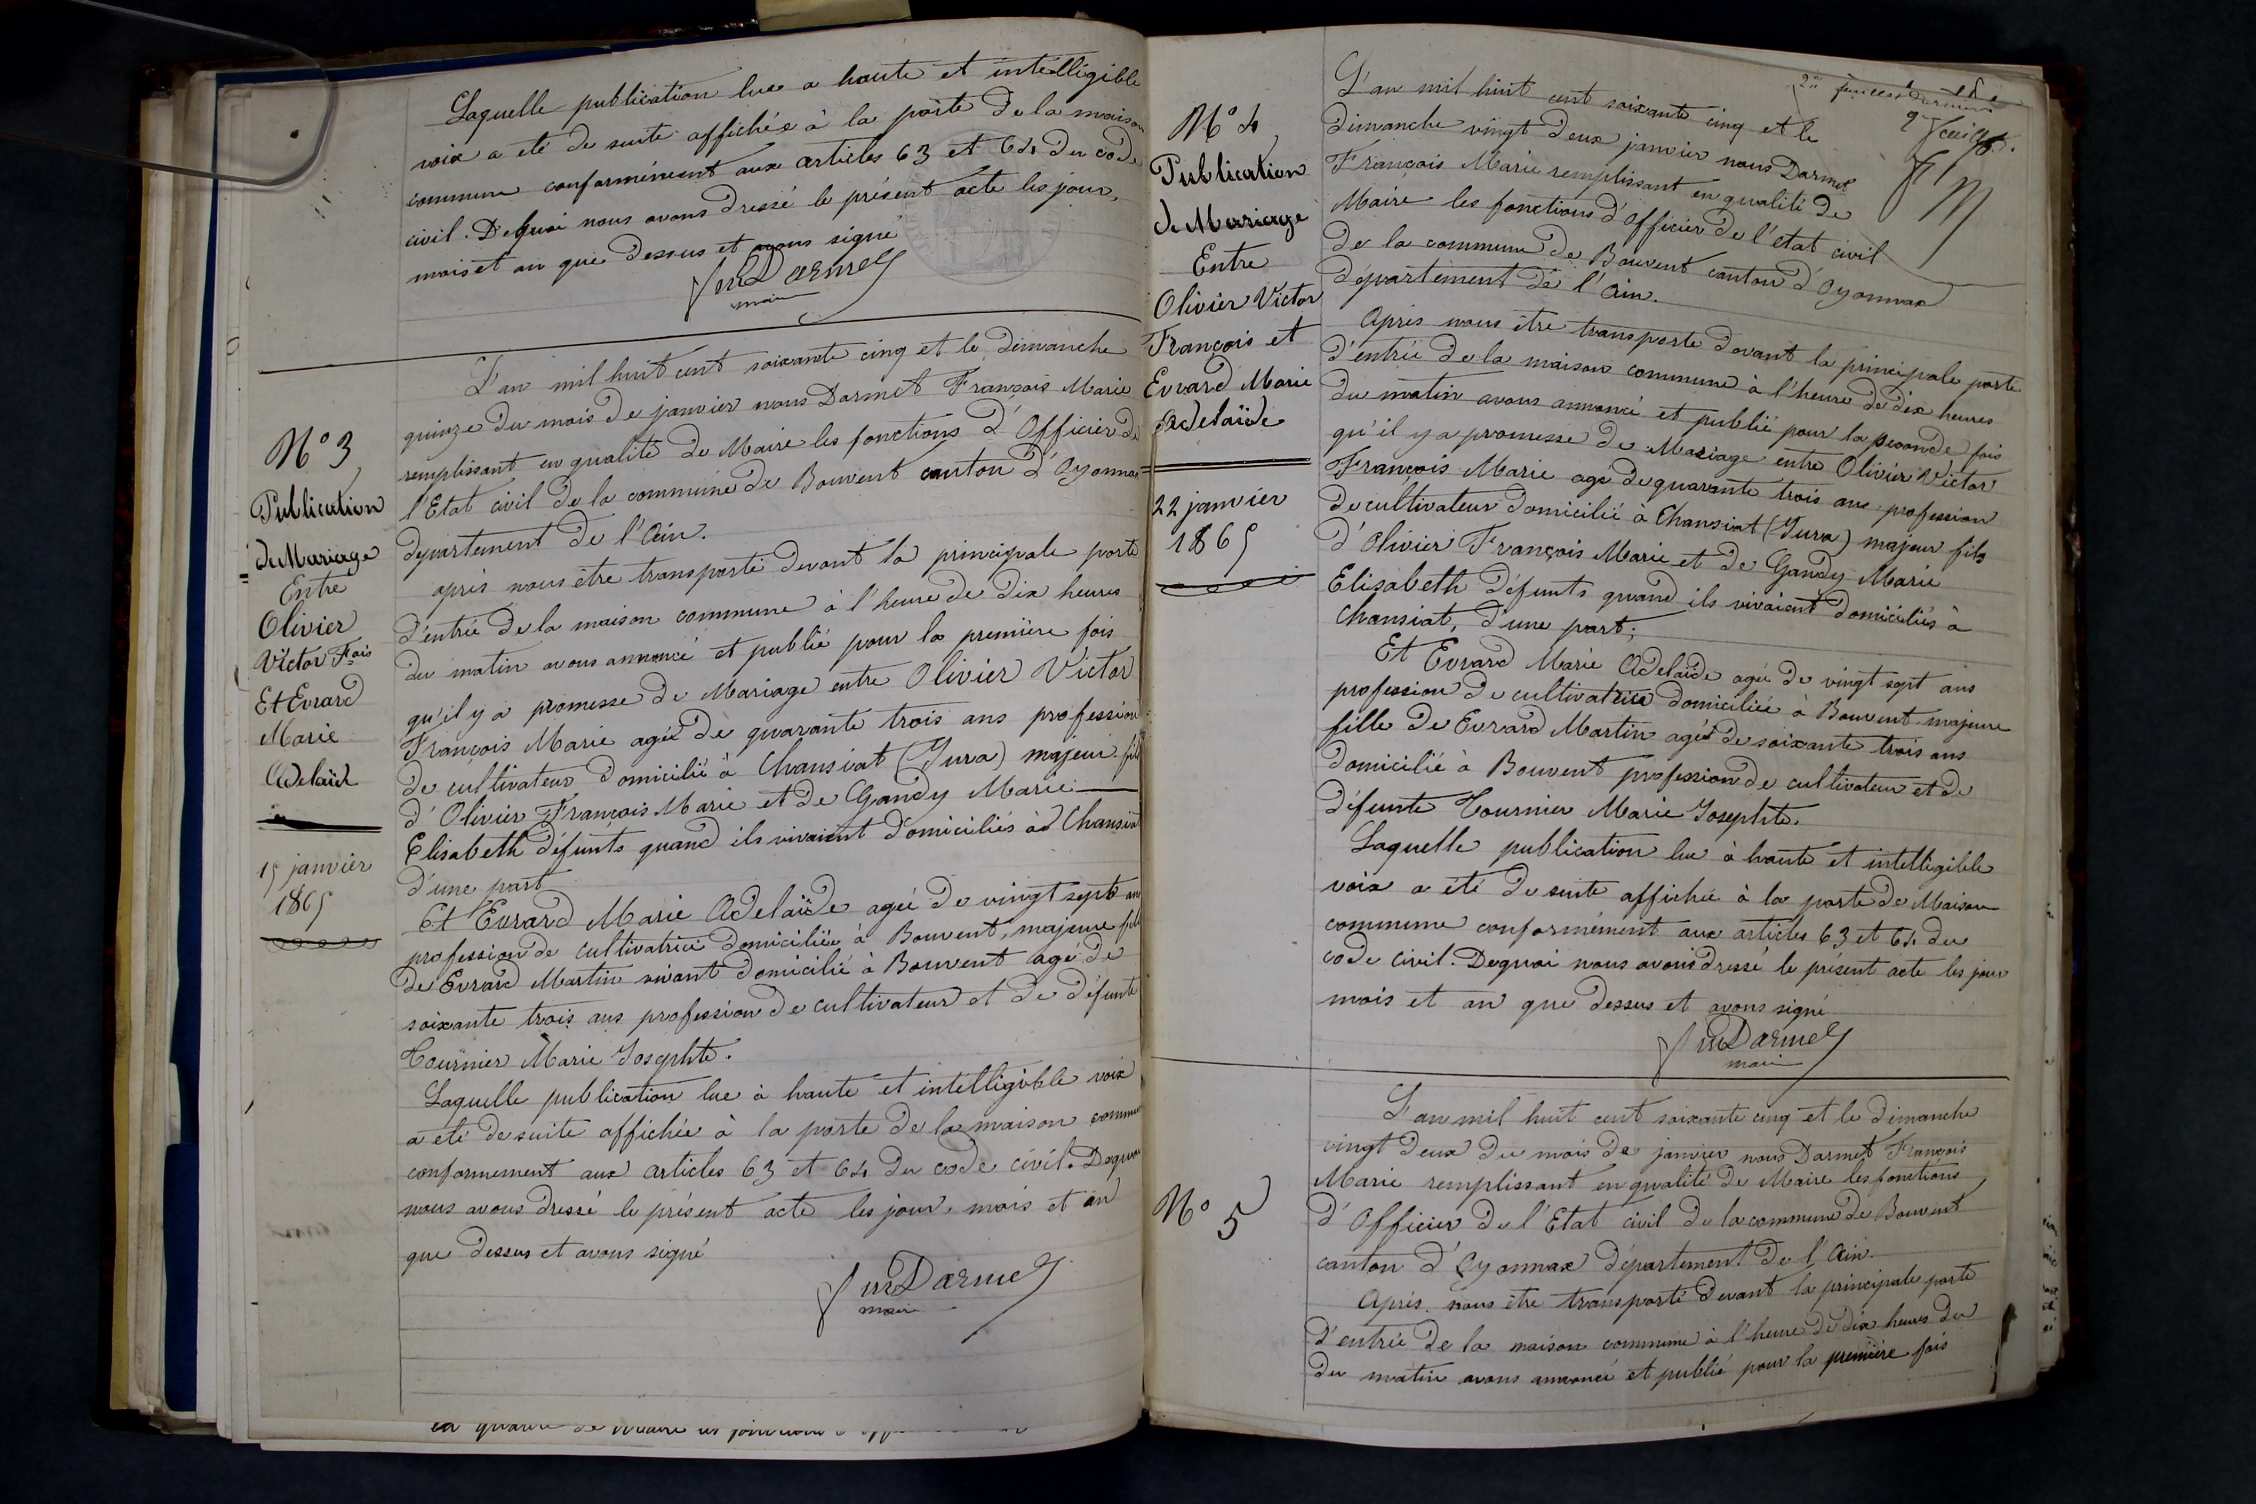 Laquelle publication lue a haute et intelligible
voix a été de suite affichée à la porte de la maison
commune conformément aux articles 63 et 64 du code
civil. Dequoi nous avons dressé le présent acte les jour,
mois et an que dessus et avons signé
Darmet
maire
N° 3
Publication
de Mariage
Entre
Olivier
Victor Fois
Et Evrard
Marie
Adelaïde
15 janvier
1865
L'an mil huit cent soixante cinq et le dimanche
quinze du mois de janvier nous Darmet François Marie
remplissant en qualité de Maire les fonctions d'Officier de
l'Etat civil de la commune de Bouvent canton d'Oyonnax
département de l'Ain.
après nous être transporté devant la principale porte
d'entrée de la maison commune à l'heure de dix heures
du matin avons annoncé et publié pour la première fois
qu'il y a promesse de Mariage entre Olivier Victor
François Marie agé de quarante trois ans profession
de cultivateur domicilié à Chansiat (Jura) majeur fils
d'Olivier François Marie et de Gandy Marie
Elisabeth défunts quand ils vivaient domiciliés à Chansiat
d'une part
Et Evrard Marie Adelaïde agée de vingt sept ans
profession de cultivatrice domiciliée à Bouvent, majeure fille
de Evrard Martin vivant domicilié à Bouvent agé de
soixante trois ans profession de cultivateur et de défunte
Tournier Marie Josephte.
Laquelle publication lue à haute et intelligible voix
a été de suite affichée à la porte de la maison commune
conformement aux articles 63 et 64 du code civil. Dequoi
nous avons dressé le présent acte les jour, mois et an
que dessus et avons signé
Darmet
maire
N° 4
Publication
de Mariage
Entre
Olivier Victor
François et
Evrard Marie
Adelaïde
22 janvier
1865
2e
feuillet
L'an mil huit cent soixante cinq et le
dimanche vingt deux janvier nous Darmet
François Marie remplissant en qualité de
Maire les fonctions d'Officier de l'état civil
de la commune de Bouvent canton d'Oyonnax
département de l'Ain.
Après nous être transporté devant la principale porte
d'entrée de la maison commune à l'heure de dix heures
du matin avons annoncé et publié pour la seconde fois
qu'il y a promesse de Mariage entre Olivier Victor
François Marie agé de quarante trois ans profession
de cultivateur domicilié à Chansiat (Jura) majeur fils
d'Olivier François Marie et de Gandy Marie
Elisabeth défunts quand ils vivaient domiciliés à
Chansiat, d'une part;
Et Evrard Marie Adelaïde agée de vingt sept ans
profession de cultivatrice domiciliée à Bouvent majeure
fille de Evrard Martin agé de soixante trois ans
domicilié à Bouvent profession de cultivateur et de
défunte Tournier Marie Josephte.
Laquelle publication lue à haute et intelligible
voix a été de suite affichée à la porte de Maison
commune conformément aux articles 63 et 64 du
code civil. Dequoi nous avons dressé le présent acte les jour
mois et an que dessus et avons signé
Darmet
maire
N° 5
L'an mil huit cent soixante cinq et le dimanche
vingt deux du mois de janvier nous Darmet François
Marie remplissant en qualité de Maire les fonctions
d'Officier de l'Etat civil de la commune de Bouvent
canton d'Oyonnax département de l'Ain.
Après nous être transporté devant la principale porte
d'entrée de la maison commune à l'heure de dix heures du
du matin avons annoncé et publié pour la première fois